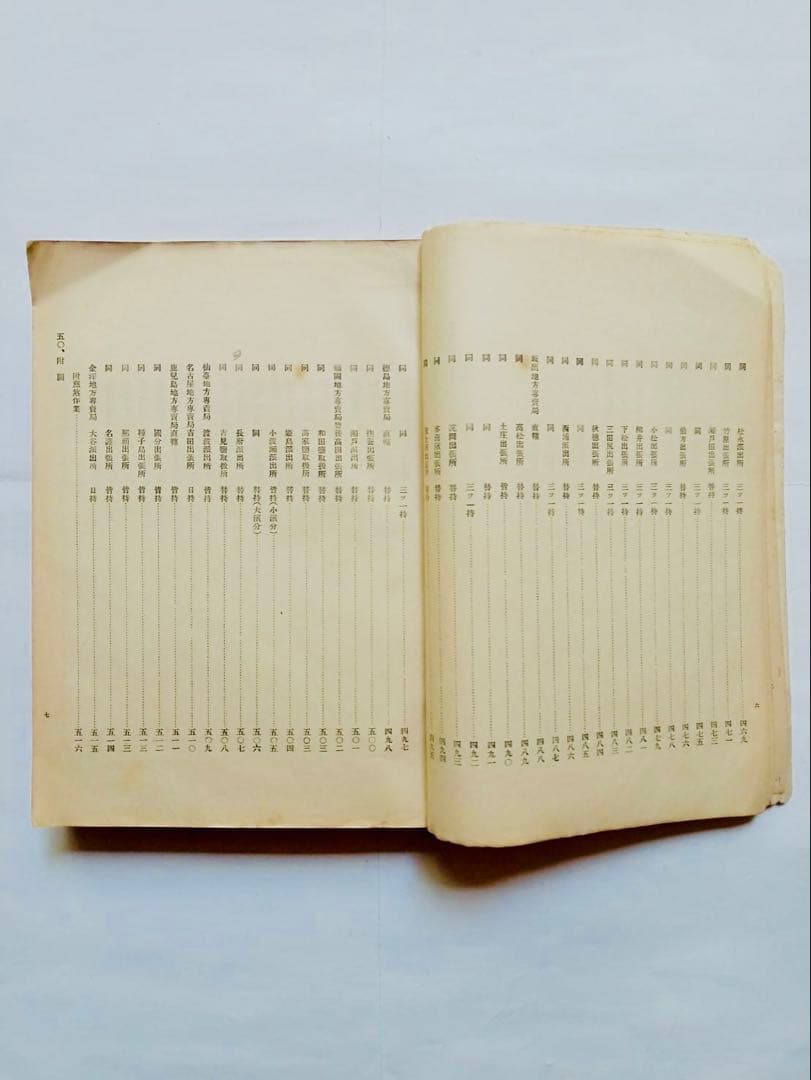 同 松永派出所 三ツ一持 四六九
同 竹原出張所 三ツ一持 四七一
同 瀬戸田出張所 替持 四七三
同 同 三ツ一持 四七五
同 替持 四七六
同 同 三ツ一持 四七八
同 小松出張所 三ツ一持 四七九
同 柳井出張所 三ツ一持 四八一
同 下松出張所 三ツ一持 四八二
同 三田尻出張所 三ツ一持 四八三
同 秋穗出張所 替持 四八四
同 同 三ツ一持 四八五
同 替持 四八六
坂出地方專賣局 直轄 三ツ一持 四八七
同 替持 四八八
同 高松出張所 替持 四八九
同 土庄出張所 替持 四九〇
同 同 替持 四九一
同 同 三ツ一持 四九二
同 替持 四九三
同 多喜濱出張所 替持 四九四
同 替持 四九五
六
同 同 三ツ一持 四九七
德島地方專賣局 直轄 替持 四九八
同 撫養出張所 替持 五〇〇
同 瀬戸派出所 替持 五〇一
福岡地方專賣局 替持 五〇二
同 和田鹽取扱所 替持 五〇三
同 高家鹽取扱所 替持 五〇三
同 姫島派出所 替持 五〇四
同 小波瀬派出所 替持(小濱分) 五〇五
同 同 替持(大濱分) 五〇六
同 長府派出所 替持 五〇七
同 吉見鹽取扱所 替持 五〇八
仙臺地方專賣局 渡波派出所 替持 五〇九
名古屋地方專賣局 吉田出張所 日持 五一〇
鹿兒島地方專賣局 直轄 替持 五一一
同 國分出張所 替持 五一二
同 種子島出張所 替持 五一三
同 那覇出張所 替持 五一三
同 名護出張所 替持 五一四
金澤地方專賣局 大谷派出所 日持 五一五
附應急作業 五一六
五〇、附圖
七